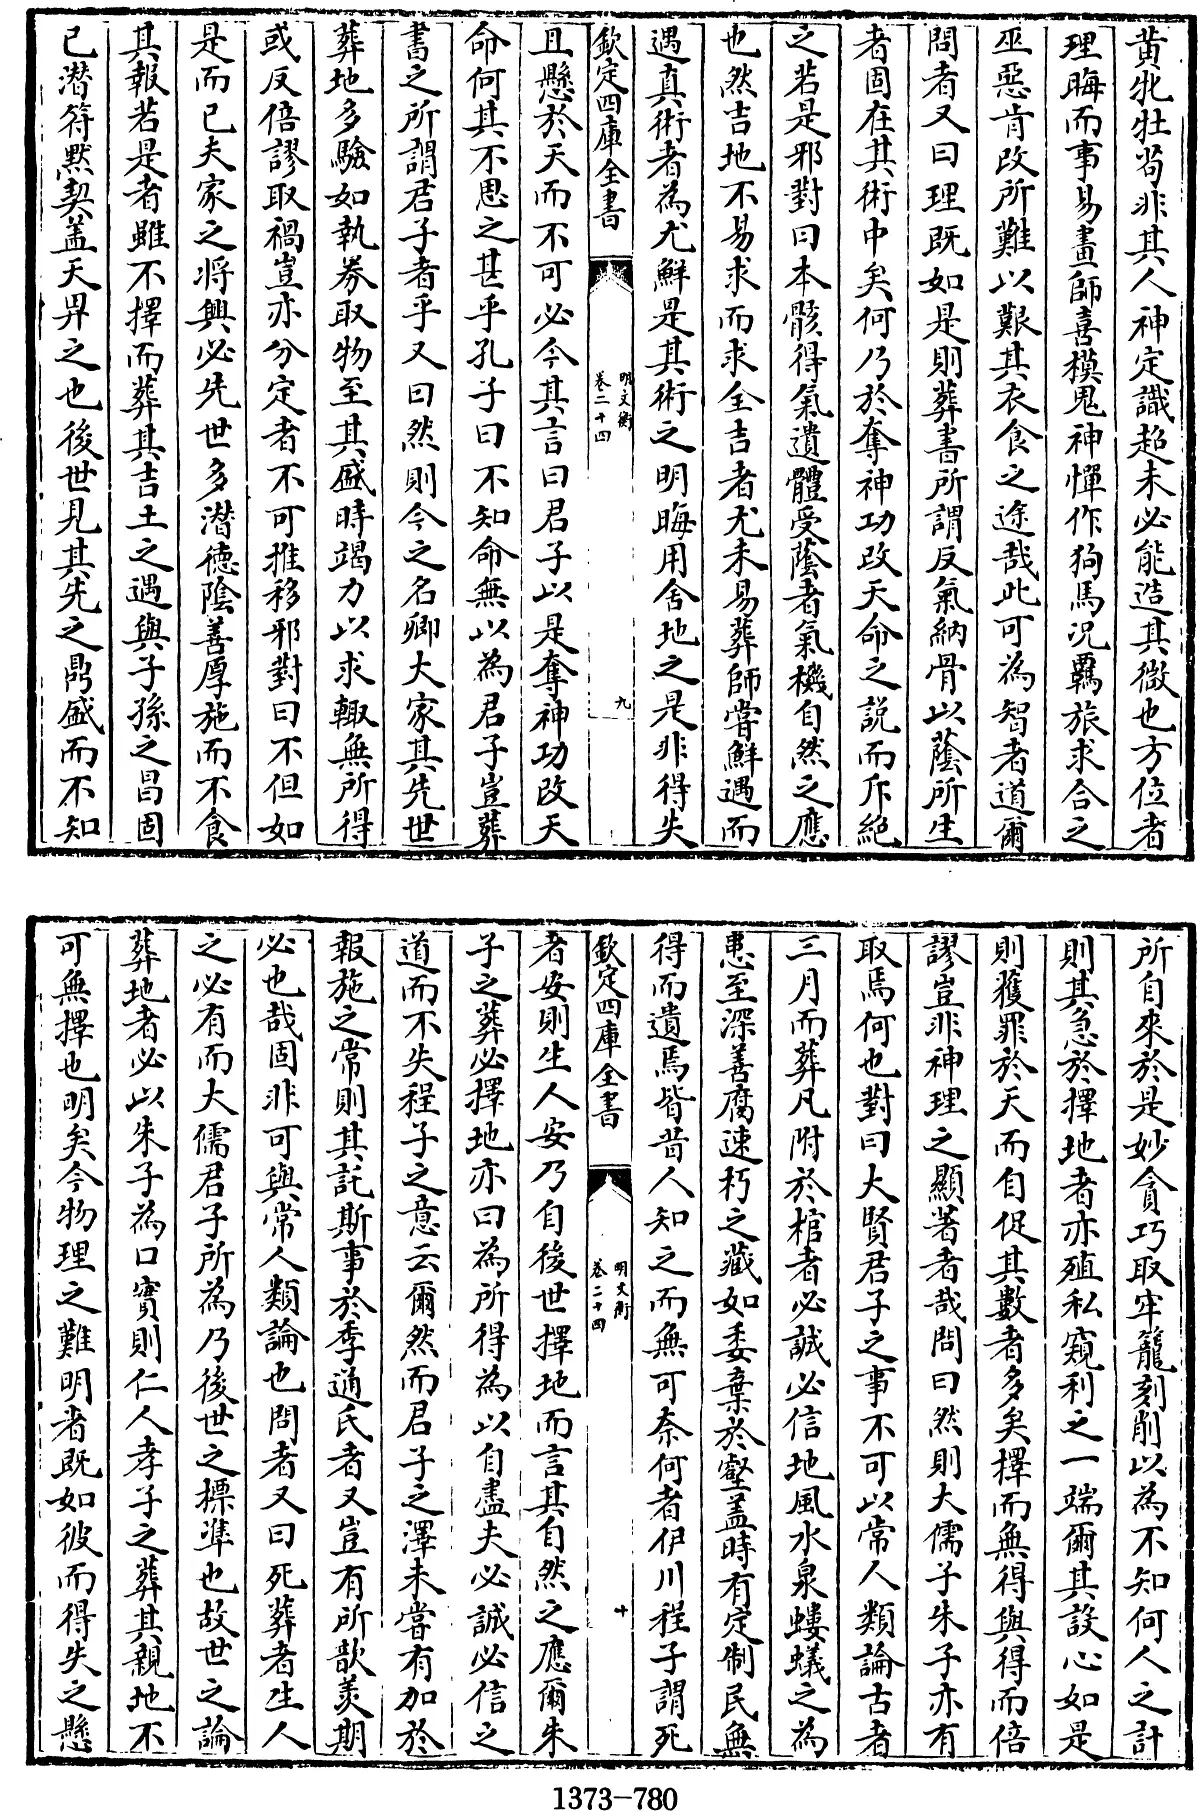 黃牝牡茍非其人神定識超未必能造其微也方位者
理晦而事易畫師喜模鬼神憚作狗馬况覊旅求合之
巫惡肯改所難以艱其衣食之途哉此可為智者道爾
問者又曰理既如是則葬書所謂反氣納骨以蔭所生
者固在其術中矣何乃於奪神功改天命之說而斥絶
之若是邪對曰本骸得氣遺體受蔭者氣機自然之應
也然吉地不易求而求全吉者尤未易葬師嘗鮮遇而
遇真術者為尤鮮是其術之明晦用舍地之是非得失
欽定四庫全書
明文衡
卷二十四
九
且懸於天而不可必今其言曰君子以是奪神功改天
命何其不思之甚乎孔子曰不知命無以為君子豈葬
書之所謂君子者乎又曰然則今之名卿大家其先世
葬地多驗如執劵取物至其盛時竭力以求輙無所得
或反倍謬取禍豈亦分定者不可推移邪對曰不但如
是而已夫家之將興必先世多潛德陰善厚施而不食
其報若是者雖不擇而葬其吉土之遇與子孫之昌固
已潛符黙契盖天畀之也後世見其先之鼎盛而不知
所自來於是妙貪巧取牢籠刻削以為不知何人之計
則其急於擇地者亦殖私窺利之一端爾其設心如是
則獲罪於天而自促其數者多矣擇而無得與得而倍
謬豈非神理之顯著者哉問曰然則大儒子朱子亦有
取焉何也對曰大賢君子之事不可以常人類論古者
三月而葬凡附於棺者必誠必信地風水泉螻蟻之為
患至深善腐速朽之藏如委棄於壑盖時有定制民無
得而遺焉皆昔人知之而無可奈何者伊川程子謂死
欽定四庫全書
明文衡
卷二十四
十
者安則生人安乃自後世擇地而言其自然之應爾朱
子之葬必擇地亦曰為所得為以自盡夫必誠必信之
道而不失程子之意云爾然而君子之澤未嘗有加於
報施之常則其託斯事於季通氏者又豈有所歆羨期
必也哉固非可與常人類論也問者又曰死葬者生人
之必有而大儒君子所為乃後世之標準也故世之論
葬地者必以朱子為口實則仁人孝子之葬其親地不
可無擇也明矣今物理之難明者既如彼而得失之懸
1373-780